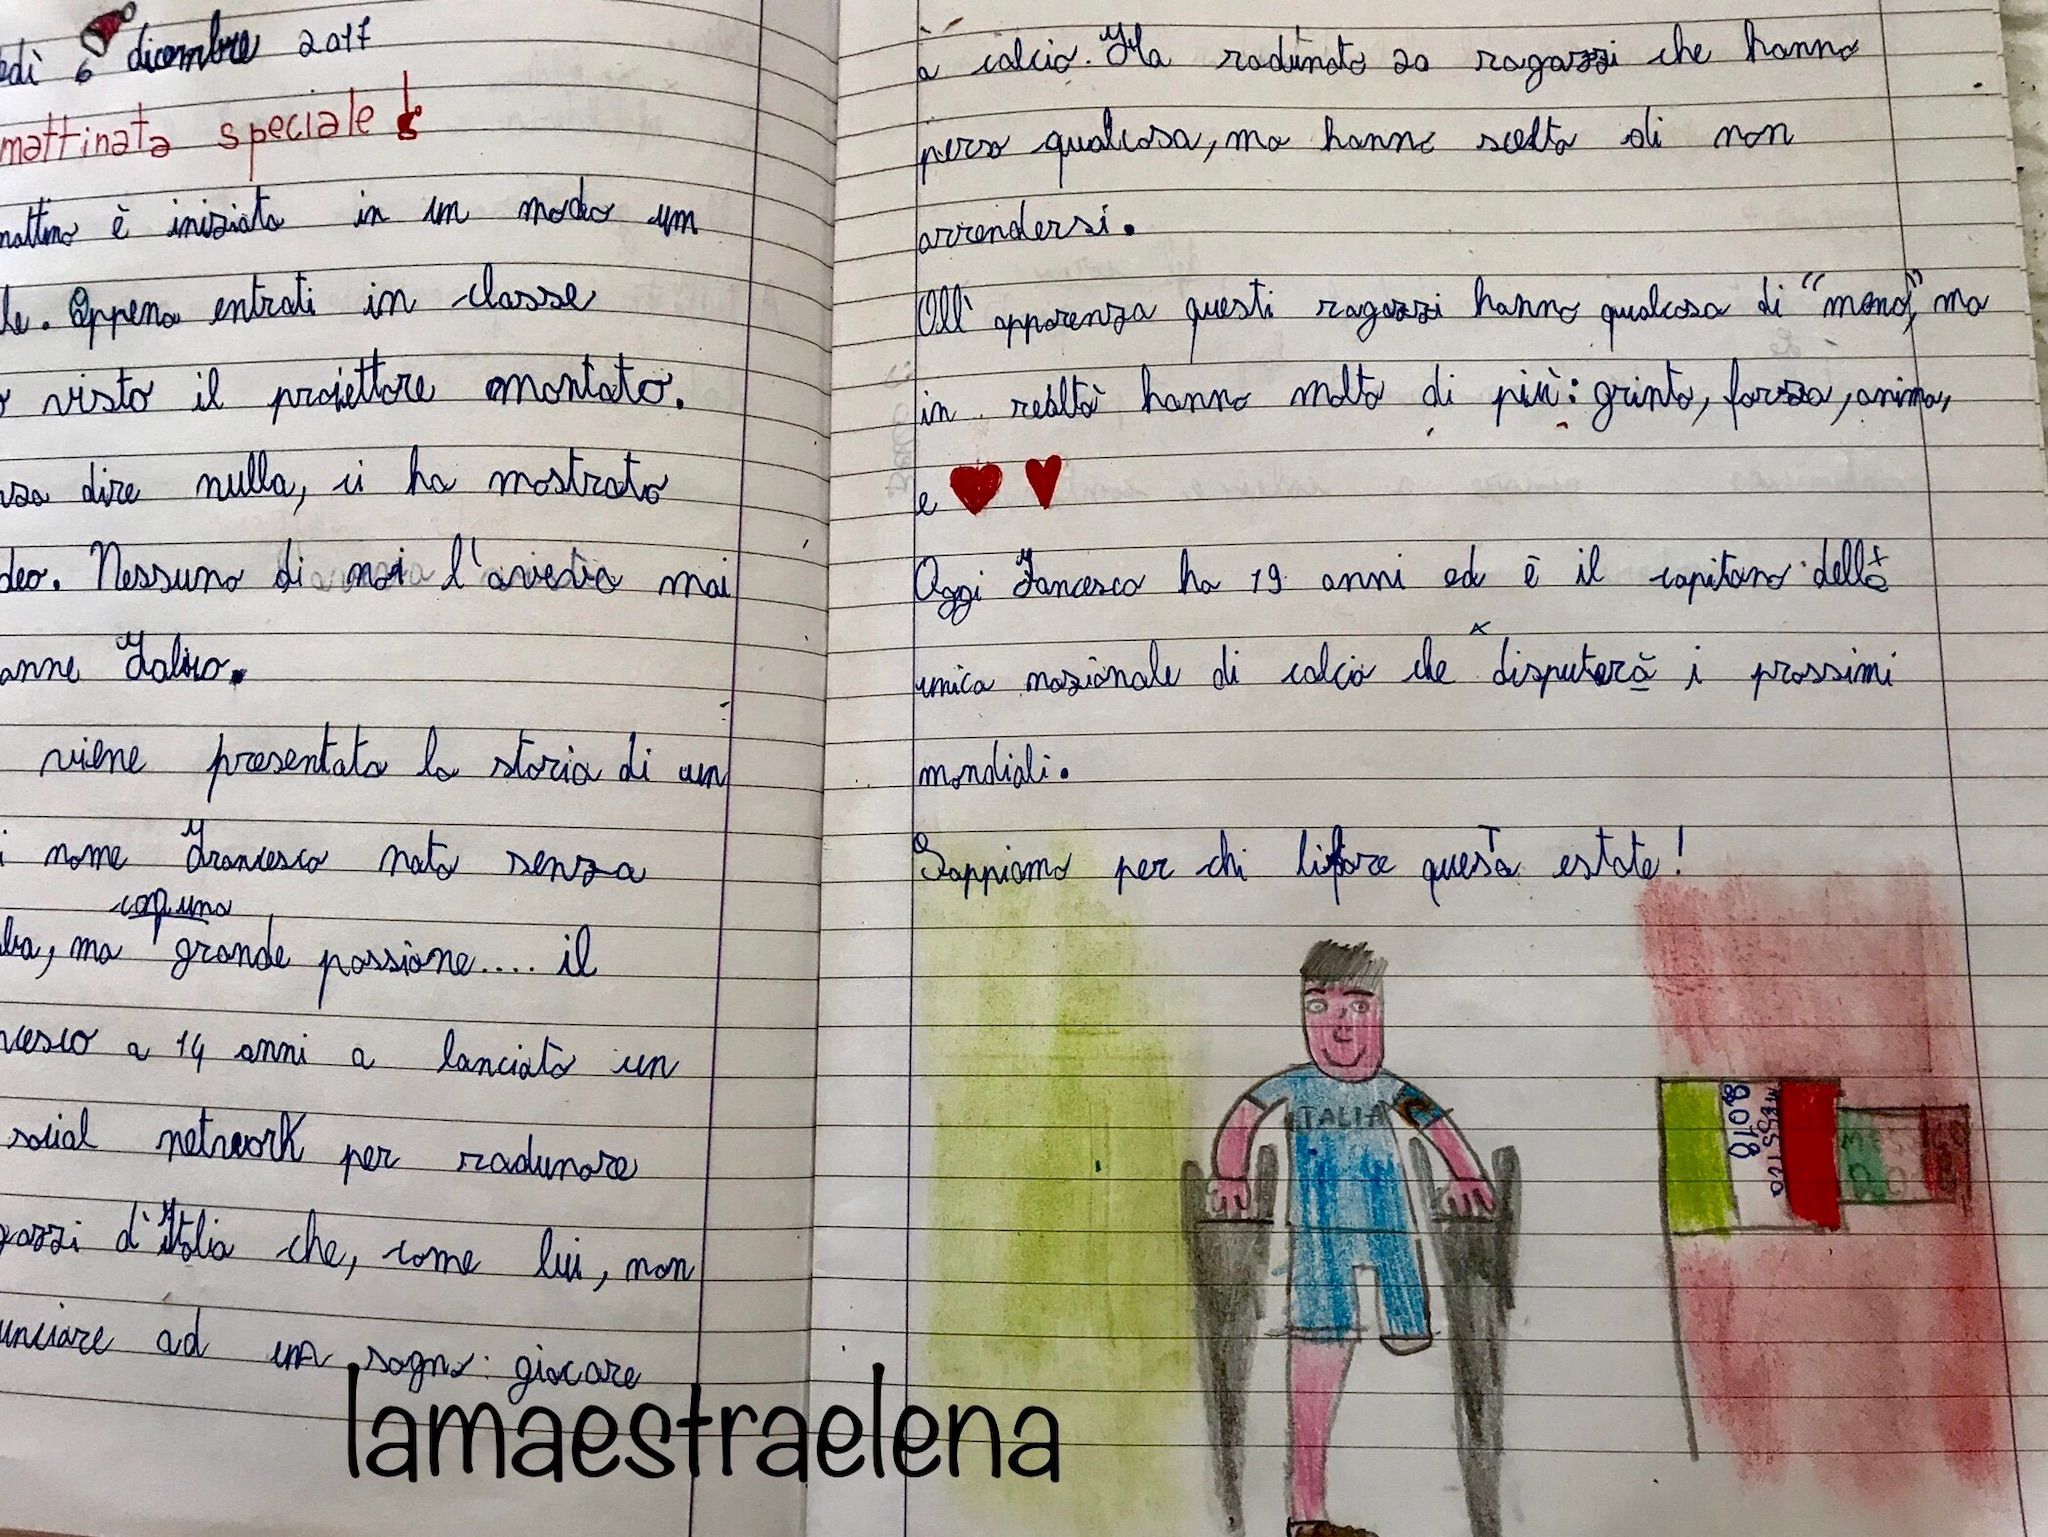 edì 6 dicembre 2017
mattinata speciale!
mattino è iniziato in un modo un
le. Appena entrati in classe
o visto il proiettore montato.
nza dire nulla, ci ha mostrato
deo. Nessuno di noi l'aveva mai
anne Ialiro.
viene presentata la storia di un
i nome Francesco nato senza
con una
ba, ma grande passione.... il
ncesco a 14 anni a lanciato un
social network per radunare
gazzi d'Italia che, come lui, non
unciare ad un sogno: giocare
a calcio. Ha radunato 20 ragazzi che hanno
perso qualcosa, ma hanno scelto di non
arrendersi.
All'apparenza questi ragazzi hanno qualcosa di "meno", ma
in realtà hanno molto di più: grinta, forza, anima,
e
Oggi Fancesco ha 19 anni ed è il capitano della
unica nazionale di calcio che disputerà i prossimi
mondiali.
Sappiamo per chi tifare questa estate!
ITALIA
2018
MESSICO
lamaestraelena